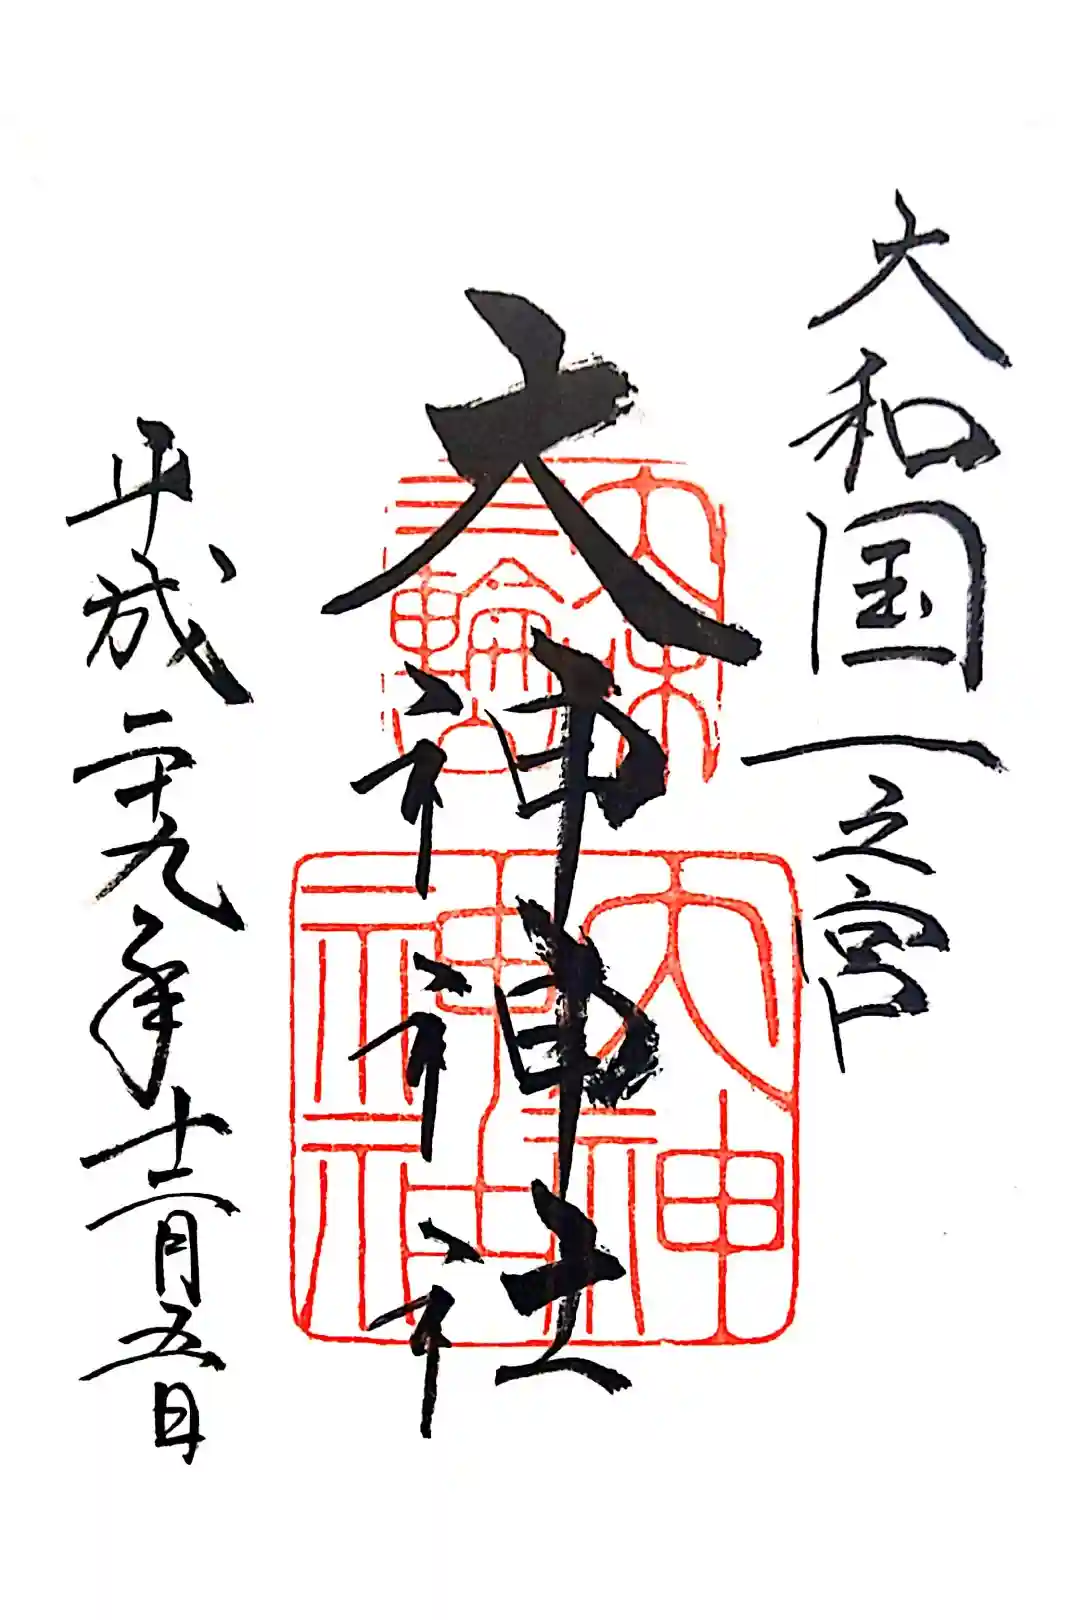 大和国一之宮
大神神社
平成二十九年十二月五日
大和
三輪山
大神
神社